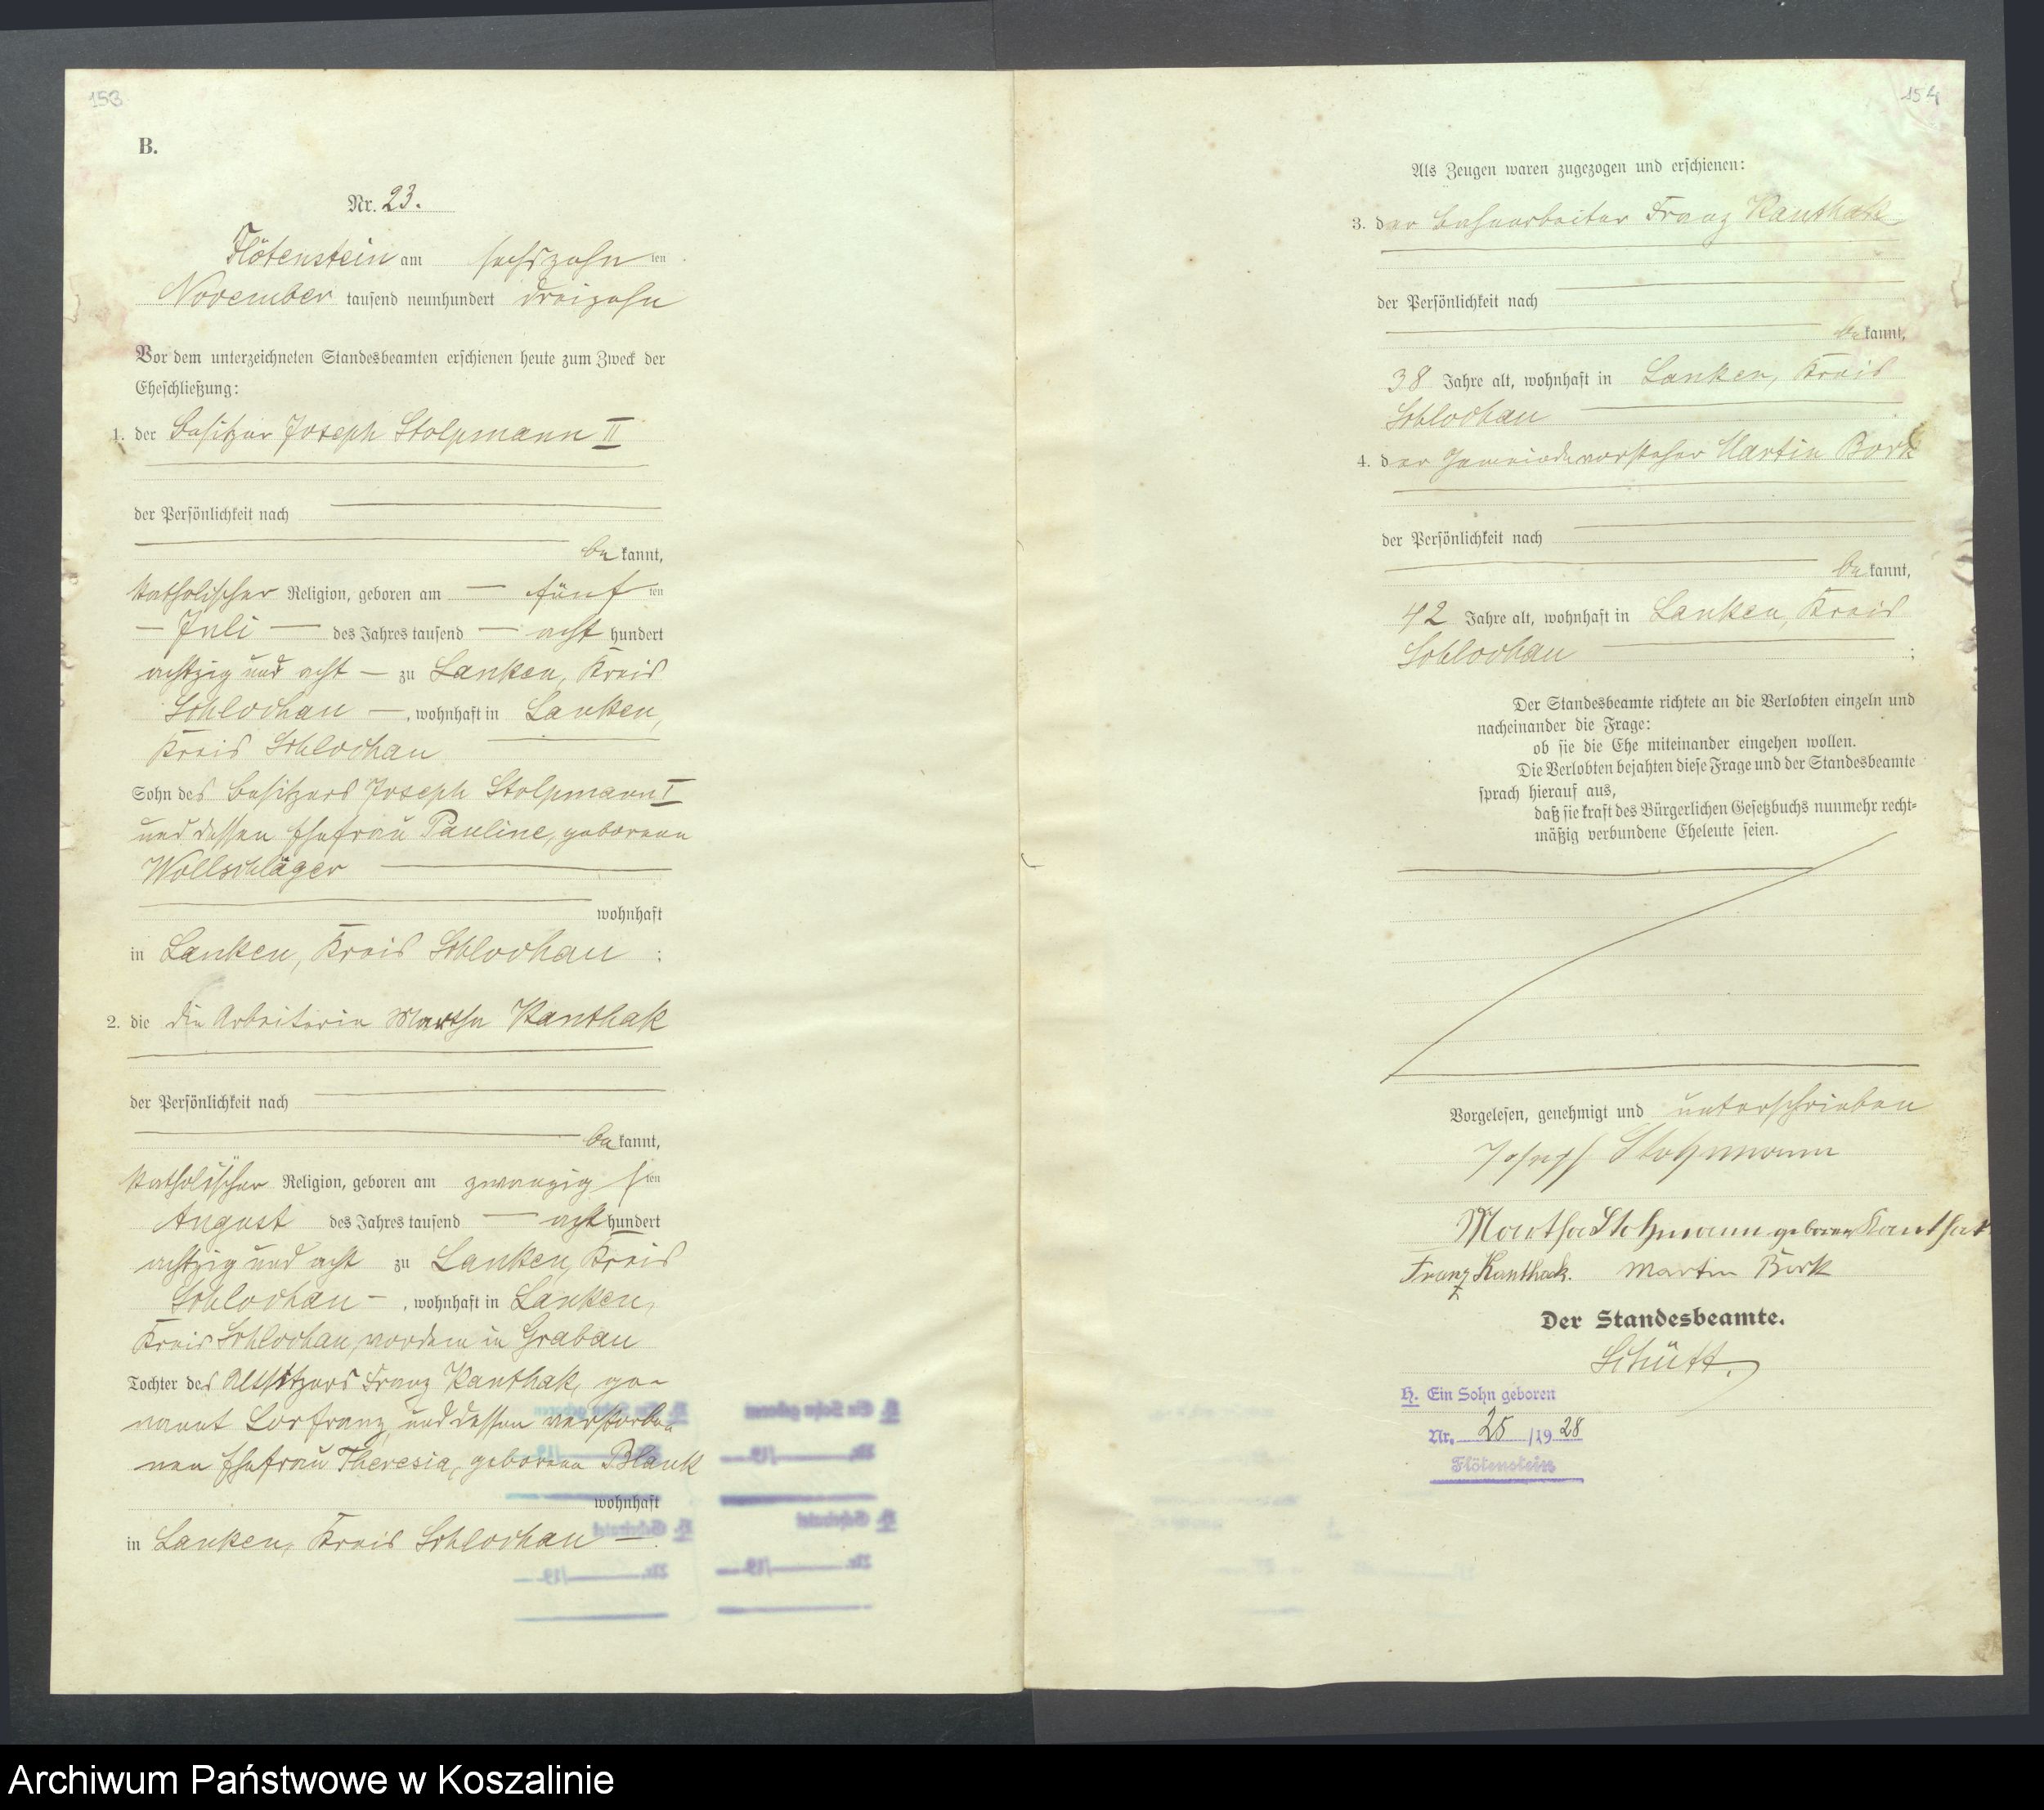 153
B.
Nr. 23.
Flötenstein am sechszehn ten
November tausend neunhundert dreizehn
Vor dem unterzeichneten Standesbeamten erschienen heute zum Zweck der
Eheschließung:
1. der Besitzer Joseph Stolpmann II
der Persönlichkeit nach
be kannt,
katholischer Religion, geboren am fünf ten
Juli des Jahres tausend acht hundert
achtzig und acht zu Lanken, Kreis
Schlochau, wohnhaft in Lanken,
Kreis Schlochau
Sohn des Besitzers Joseph Stolpmann I
und dessen Ehefrau Pauline, geborene
Wollschläger
wohnhaft
in Lanken, Kreis Schlochau ;
2. die die Arbeiterin Martha Kanthak
der Persönlichkeit nach
be kannt,
katholischer Religion, geboren am zwanzig s ten
August des Jahres tausend acht hundert
achtzig und acht zu Lanken, Kreis
Schlochau, wohnhaft in Lanken,
Kreis Schlochau, vordem in Grabau
Tochter des Altsitzers Franz Kanthak, ge-
nannt Lorfranz, und dessen verstorbe-
nen Ehefrau Theresia, geborene Blank
wohnhaft
in Lanken, Kreis Schlochau
154
Als Zeugen waren zugezogen und erschienen:
3. der Bahnarbeiter Franz Kanthak
der Persönlichkeit nach
be kannt,
38 Jahre alt, wohnhaft in Lanken, Kreis
Schlochau
4. der Gemeindevorsteher Martin Bork
der Persönlichkeit nach
be kannt,
42 Jahre alt, wohnhaft in Lanken, Kreis
Schlochau ;
Der Standesbeamte richtete an die Verlobten einzeln und
nacheinander die Frage:
ob sie die Ehe miteinander eingehen wollen.
Die Verlobten bejahten diese Frage und der Standesbeamte
sprach hierauf aus,
daß sie kraft des Bürgerlichen Gesetzbuchs nunmehr recht-
mäßig verbundene Eheleute seien.
Vorgelesen, genehmigt und unterschrieben
Joseph Stolpmann
Martha Stolpmann geborene Kanthak
Franz Kanthack. Martin Bork
Der Standesbeamte.
Schütt.
H. Ein Sohn geboren
Nr. 25 /19 28
Flötenstein
Archiwum Państwowe w Koszalinie